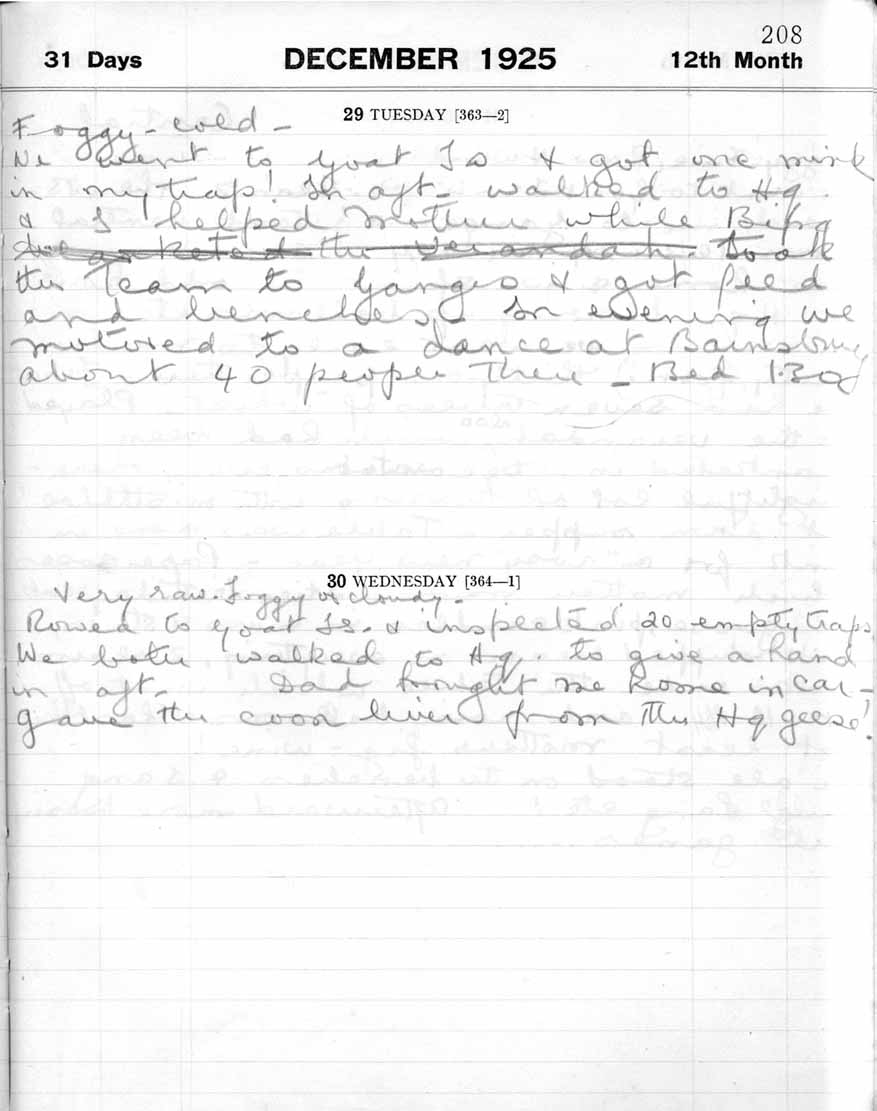 208
31 Days DECEMBER 1925 12th Month
29 TUESDAY [363—2]
Foggy - cold -
We went to goat Is & got one mink
in my trap! In aft - walked to Hq.
& I helped Mother while
the verandah. took
the Team to Ganges & got feed
and benches. In evening we
motored to a dance at
about 40 people there - Bed 1.30
30 WEDNESDAY [364—1]
Very raw. Foggy or cloudy -
Rowed to goat Is. & inspected 20 empty traps.
We both walked to Hq. to give a hand
in aft - Dad brought me home in car -
gave the coon liver from the Hq geese!